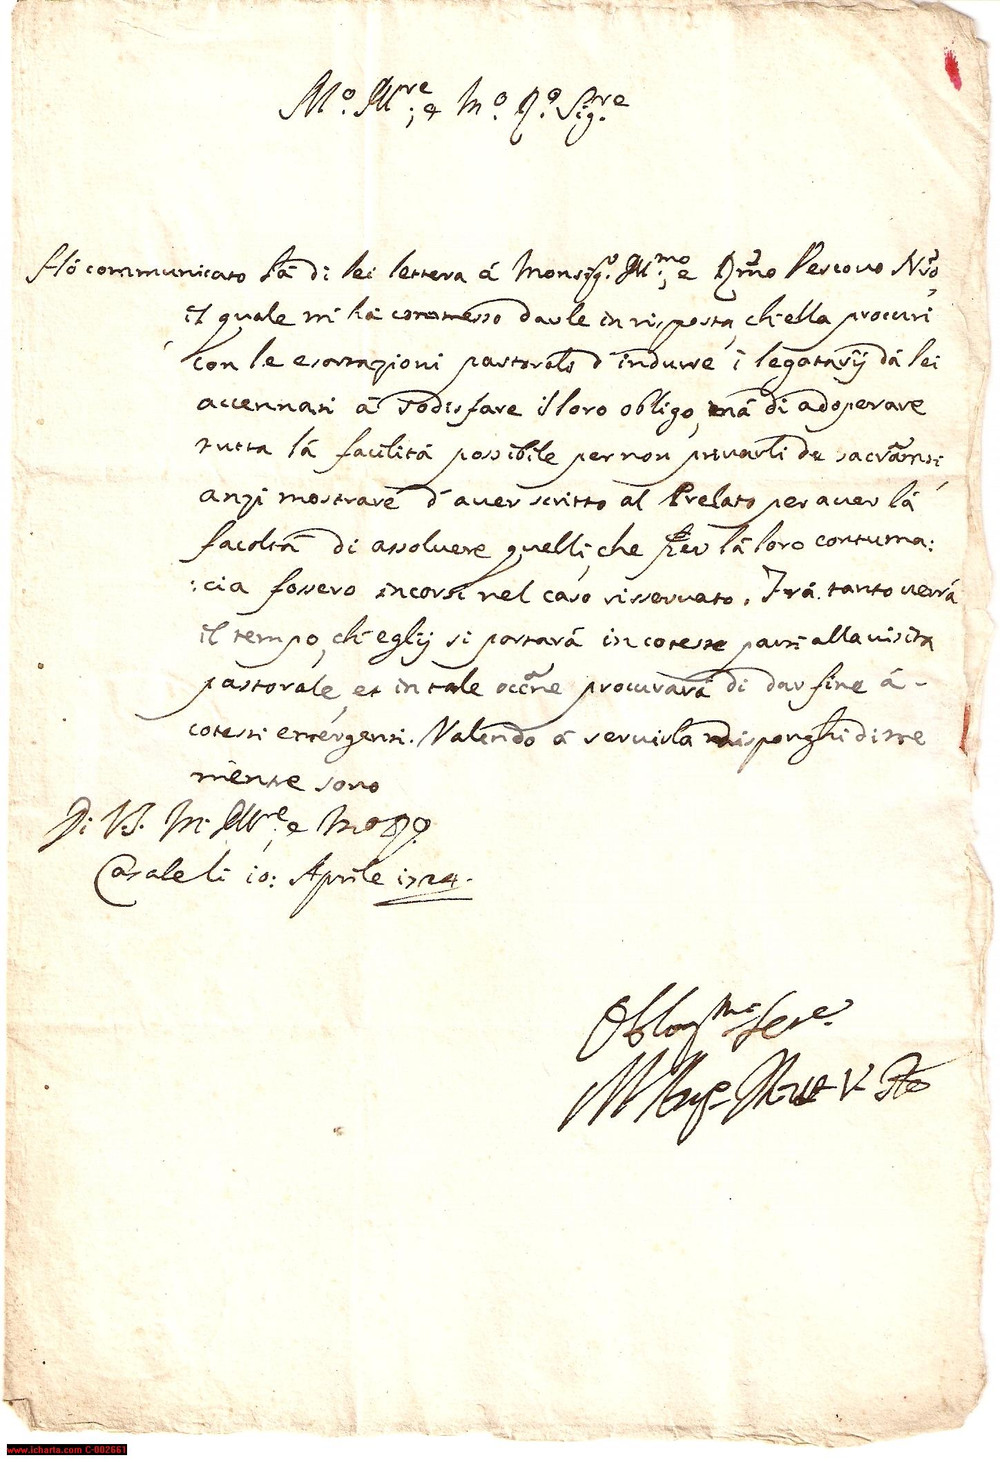 M.º Ill.re, e M.º R.º Sig.re
Hò communicato la di lei lettera á Monsig.r Ill.mo, e R.mo Vescovo N.ro,
il quale mi há commesso darle in risposta, ch'ella procuri
con le esortazioni pastorali d'indurre i legatarij dá lei
accennati á sodisfare il loro obligo, má di adoperare
tutta lá facilitá possibile per non privarli de sacram.ti
anzi mostrare d'aver scritto al Prelato per aver lá
facoltá di assolvere quelli, che per lá loro contuma:
:cia fossero incorsi nel caso risservato. Frá tanto verrá
il tempo, ch'eglij si portará in coteste parti alla visita
pastorale, et in tale occ.ne procurará di dar fine á
cotesti emergenti. Valendo á servirla disponghi di me
mentre sono
Di V.S. M. Ill.re, e M.º R.º
Casale li 10: Aprile 1724.
Oblig.mo Ser.e
V.
www.icharta.com C-002661